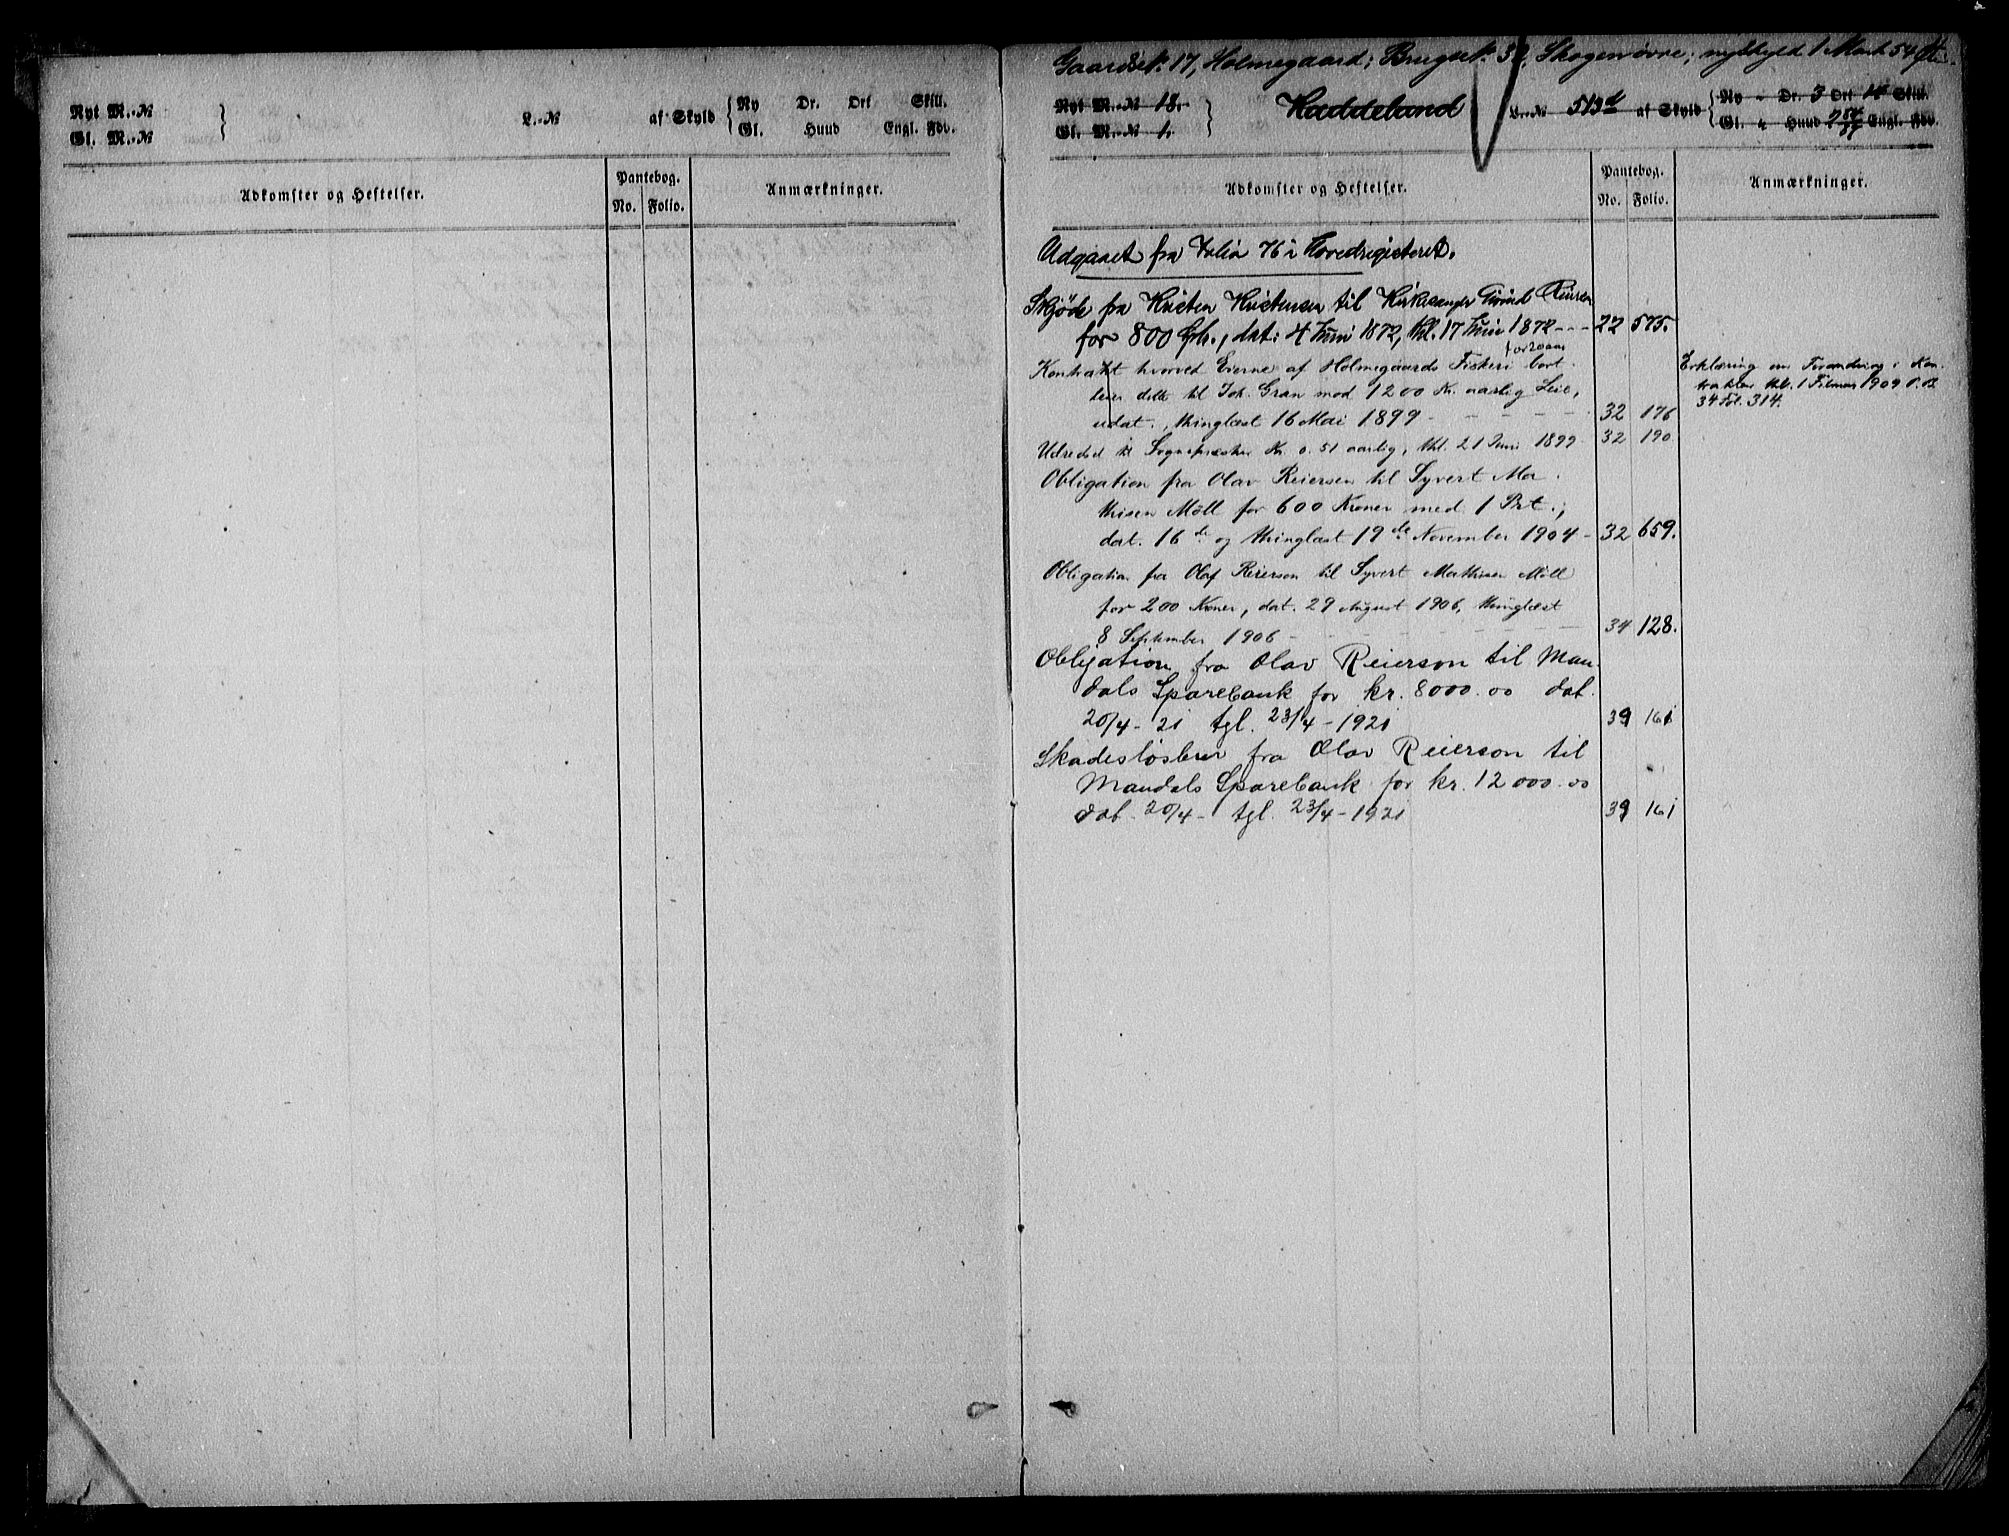 Nyt M.-№ }
Gl. M.-№
L.-№ af Skyld { Ny Dr. Ort Skill.
Gl. Huud Engl. Fdv.
Adkomster og Heftelser.
Pantebog.
No. Folio.
Anmærkninger.
Gaards№. 17, Holmegaard; Brugs№. 32, Skogenøvre; nyskyld 1 Mark 54 Øre.
Nyt M.-№ 18. } Haddeland L.-№ 513d af Skyld { Ny " Dr. 3 Ort Skill.
Gl. M.-№ 1. Gl. " Huud Engl. Fdv.
Adkomster og Heftelser.
Pantebog.
No. Folio.
Anmærkninger.
Udgaaet fra Folio 76 i Hovedregisteret.
Skjöde fra Kristen Kristensen til Kirkesanger Reiersen
for 800 Spd., dat: 4 Juni 1872, thl. 17 Juni 1872 - - - 22 575.
for 20 aar
Kontrakt hvorved Eierne af Holmegaards Fiskeri bort-
leier dette til Joh. Gran mod 1200 Kr. aarlig Leie,
udat., thinglæst 16 Mai 1899 - - - - 32 176
Erklæring om Forandring i Kon-
trakten thl. 1 Februar 1909 P.B.
34 Fol. 314.
Udredsel til Sognepræsten Kr. 0.51 aarlig, thl. 21 Juni 1899 32 190
Obligation fra Olav Reiersen til Syvert Ma-
thisen Möll for 600 Kroner med 1 Prt.;
dat. 16de og thinglæst 19de November 1904 - 32 659.
Obligation fra Olaf Reierson til Syvert Mathisen Möll
for 200 Kroner, dat. 29 August 1906, thinglæst
8 September 1906 - - - - - 34 128.
Obligation fra Olav Reierson til Man-
dals Sparebank for kr. 8000.00 dat.
20/4 - 21 tgl. 23/4 - 1921 39 161
Skadesløsbrev fra Olav Reierson til
Mandals Sparebank for kr. 12 000.00
dat. 20/4 - tgl. 23/4 - 1921 39 161